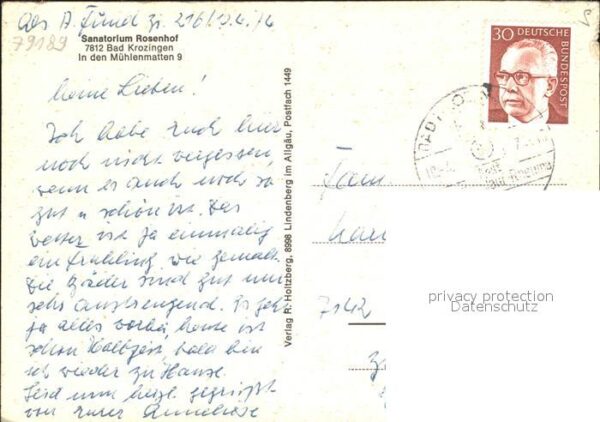 79189
Sanatorium Rosenhof
7812 Bad Krozingen
In den Mühlenmatten 9
30 DEUTSCHE BUNDESPOST
Meine Lieben!
Ich habe euch hier
noch nicht vergessen,
wenn es auch noch so
gut u schön ist. Das
Wetter ist ja einmalig
ein Frühling wie gemalt.
Die Bäder sind gut nur
sehr anstrengend. Es geht
ja alles vorbei heute ist
schon Halbzeit, bald bin
ich wieder zu Hause.
Seid nun herzl. gegrüßt
von eurer Anneliese
Verlag R. Holtzberg, 8998 Lindenberg im Allgäu, Postfach 1449
Fam
7142
privacy protection
Datenschutz